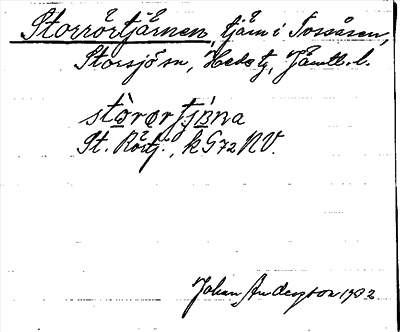 Storrörtjärnen, tjärn i Tossåsen,
Storsjö sn, Hede tg, Jämtl. l.
stòrørtjæ̀na
St. Rörtj., k G72 NV.
Johan Anderson 1932